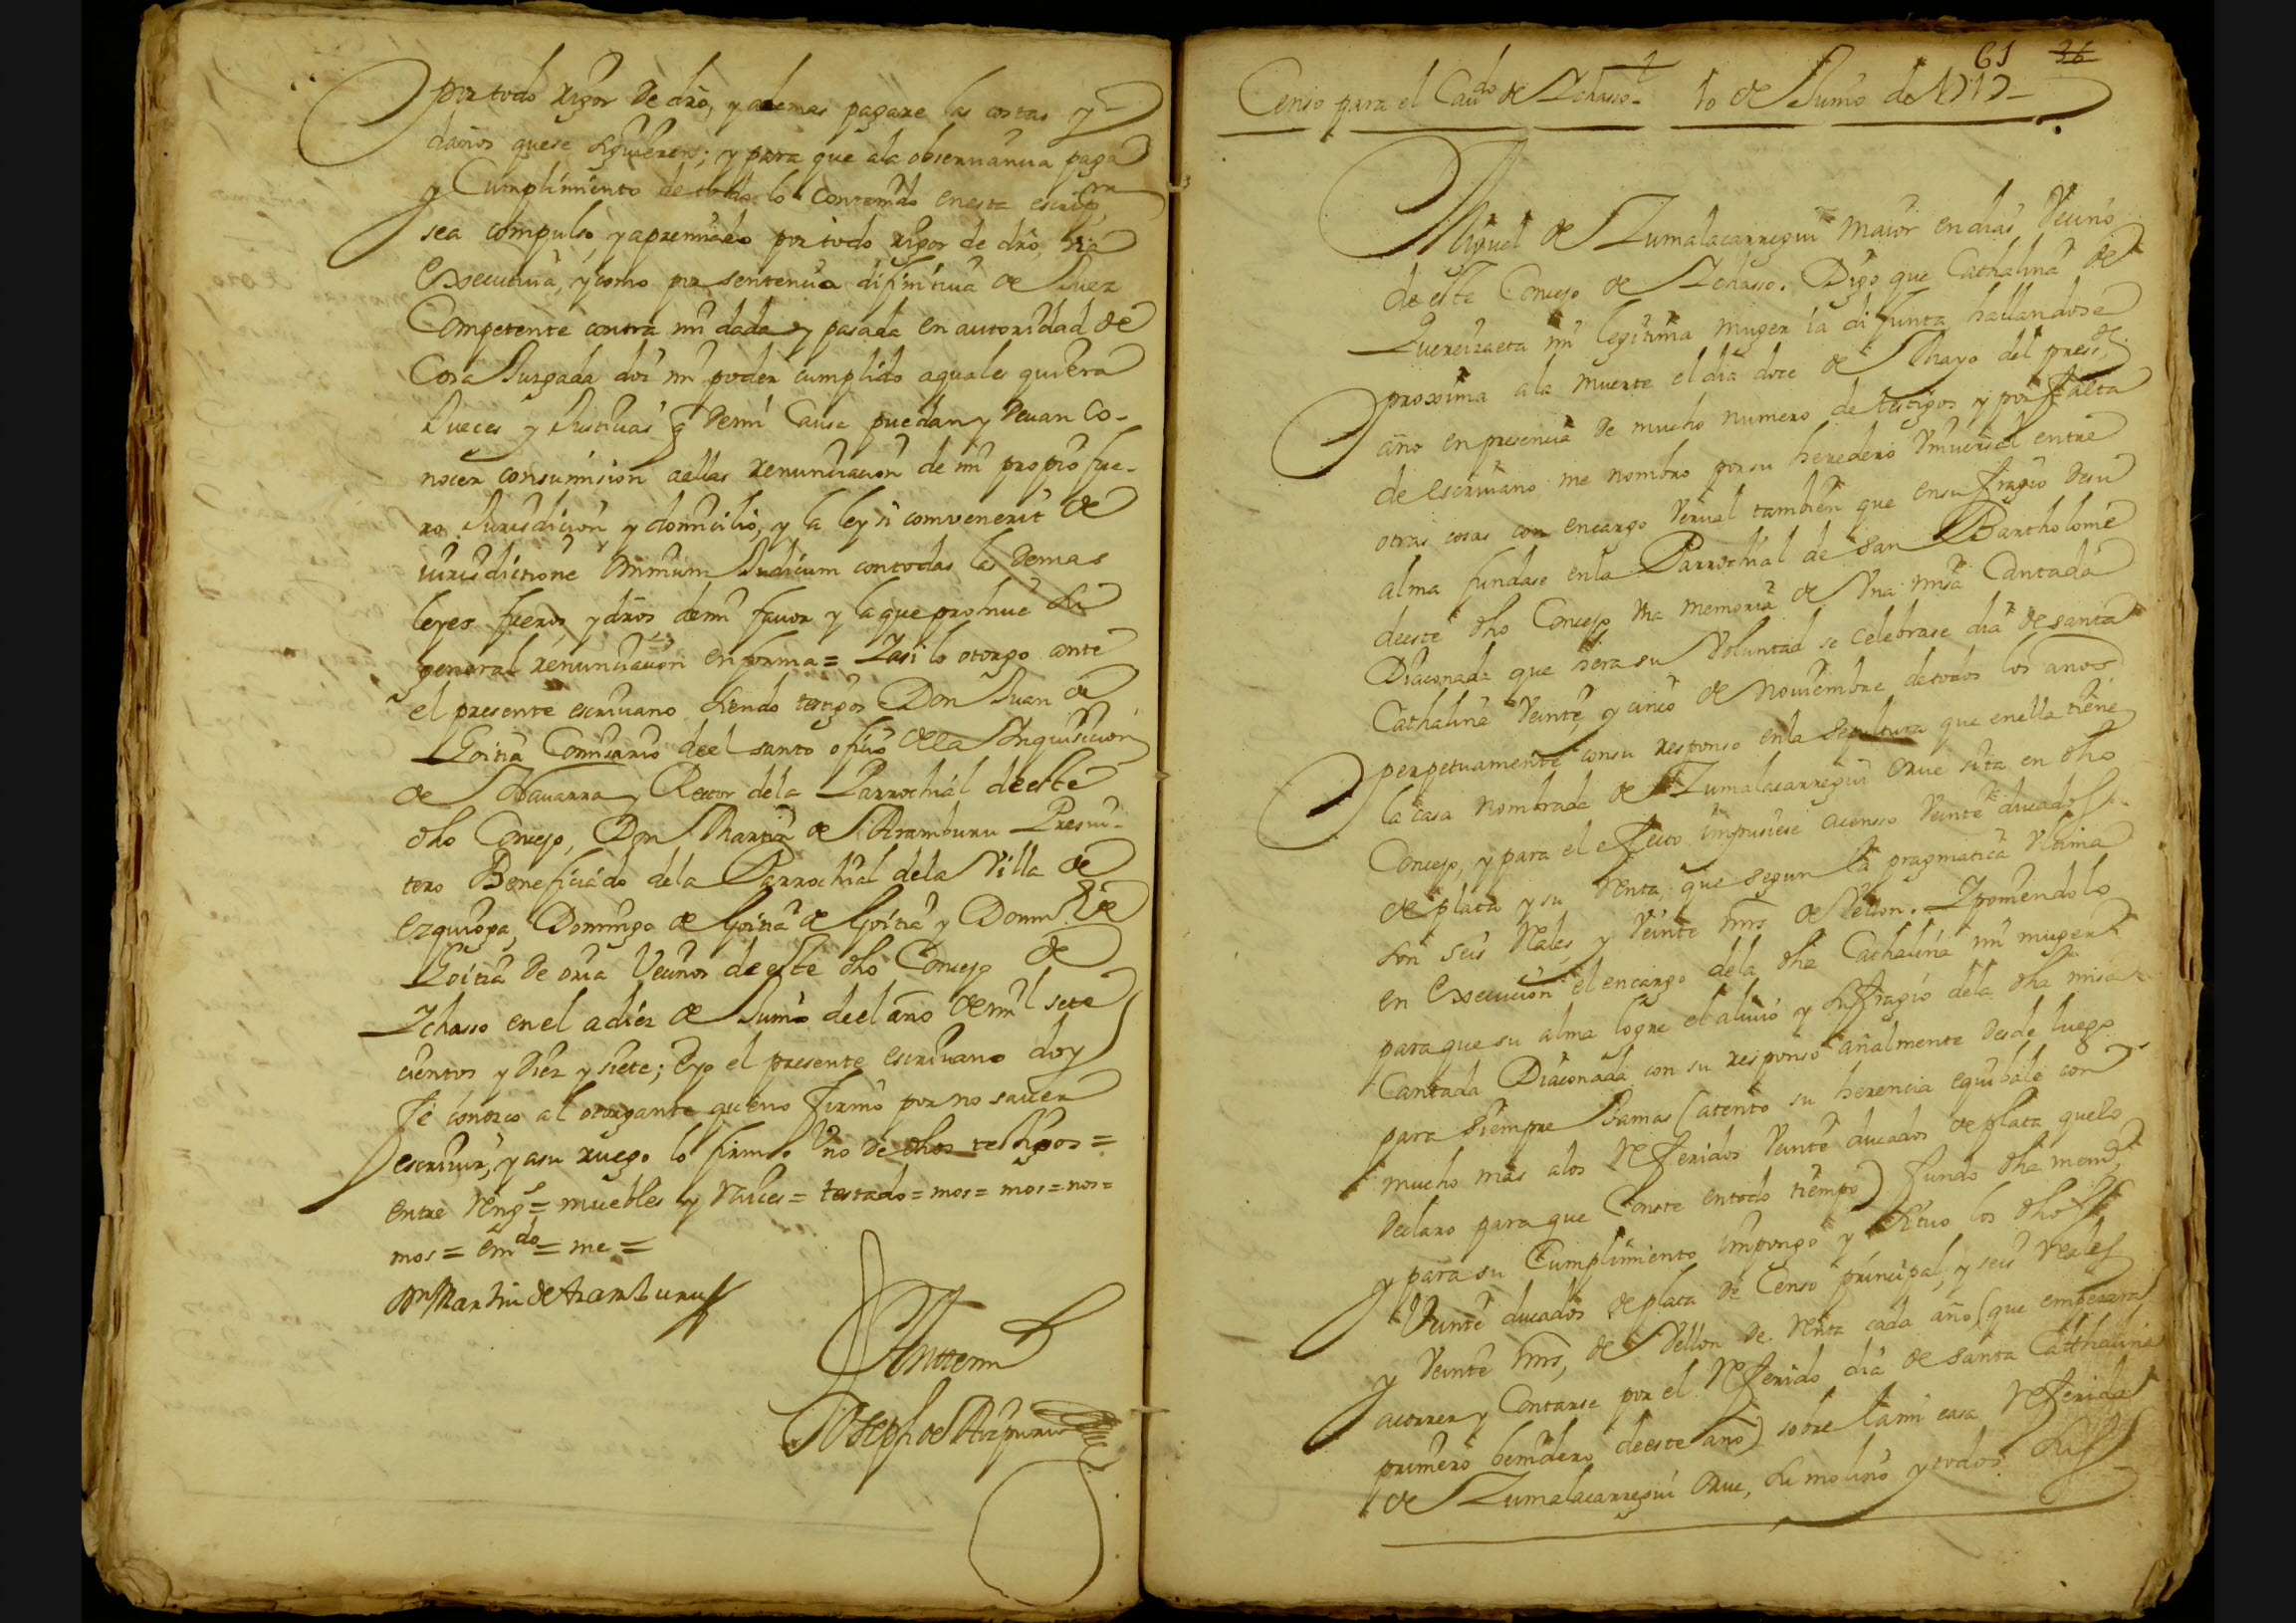 por todo rigor de dro, y ademas pagare las costas y
daños que se siguieren; y para que ala obseruancia paga
y Cumplimiento de todo lo Contenido en esta escripra
sea compulso, y apremiado por todo rigor de dro, via
Executiua, y como por sentencia difinitiua de Juez
Competente contra mi dada y pasada en autoridad de
Cosa Juzgada doi mi poder cumplido aquales quiera
Jueces y Justicias q demi Causa puedan y deuan Co-
nocer consumision aellas renunciacion de mi propio fue-
ro Jurisdicion y domicilio, y la ley si comvenerit de
iurisdictione Omnium Judicum contodas las demas
leyes fueros, y dros demi fauor y la que prohiue la
general renunciacion en forma = Y asi lo otorgo ante
el presente escriuano siendo testigos Don Juan de
Goitia Comisario deel santo oficio dela Inquisicion
de Nauarra y Rector dela Parrochial deeste
dho Concejo, Don Martin de Aramburu Presui-
tero Beneficiado dela Parrochial dela Villa de
ezquioga, Domingo de Goitia de Goitia y Domin.go de
Goitia de oria Vecinos deeste dho Concejo de
Ychasso en el adiez de Junio deel año de mil sete
cientos y Diez y siete; Eyo el presente escriuano doy
fe conozco al otorgante quien no firmo por no sauer
escriuir, y asu ruego lo firmo Vno de dhos testigos =
entre rengs = muebles y raices = testado = mos = mos = nos =
mos = emdo = me =
Dn Martin de Aramburu
Antemi
Joseph de Aizpuru
61 36
Censo para el Caudo de Ychasso. 10 de Junio de 1717
Miguel de Zumalacarregui maior en dias Vecino
de este Concejo de Ychasso. Digo que Cathalina de
Quereizaeta mi legitima muger ia difunta hallandose
proxima ala muerte el dia doce de Mayo del preste
año en presencia de mucho numero de testigos y por falta
de escriuano me nombro por su heredero Vniuersal entre
otras cosas con encargo Verual tambien que en sufragio desu
alma fundase enla Parrochial de san Bartholome
deeste dho Concejo Vna memoria de Vna misa Cantada
Diaconada que hera su Voluntad se celebrase dia de santa
Cathalina Veinte y cinco de Nouiembre detodos los anos
perpetuamente consu responso enla sepultura que enella tiene
la casa nombrada de Zumalacarregui Orue sita en dho
Concejo, y para el efecto impusiese acensso Veinte ducados
de plata y su renta, que segun la pragmatica Vltima
son seis Reales y Veinte mrs de Vellon. Y poniendolo
en Execucion el encargo dela dha Cathalina mi muger
para que su alma logre el aliuio y sufragio dela dha misa
Cantada Diaconada con su responso añalmente desde luego
para siempre Jamas (atento su herencia equibale con
mucho mas alos referidos Veinte ducados de plata que lo
declaro para que Conste entodo tiempo) fundo dha mema
y para su Cumplimiento impongo y situo los dhos
Veinte ducados de plata de Censo principal, y seis reales
y Veinte mrs, de Vellon de renta cada año, (que empezara
acorrer y Contarse por el referido dia de santa Catthalina
primero benidero deeste año) sobre la mi casa referida
de Zumalacarregui Orue, su molino y todos sus